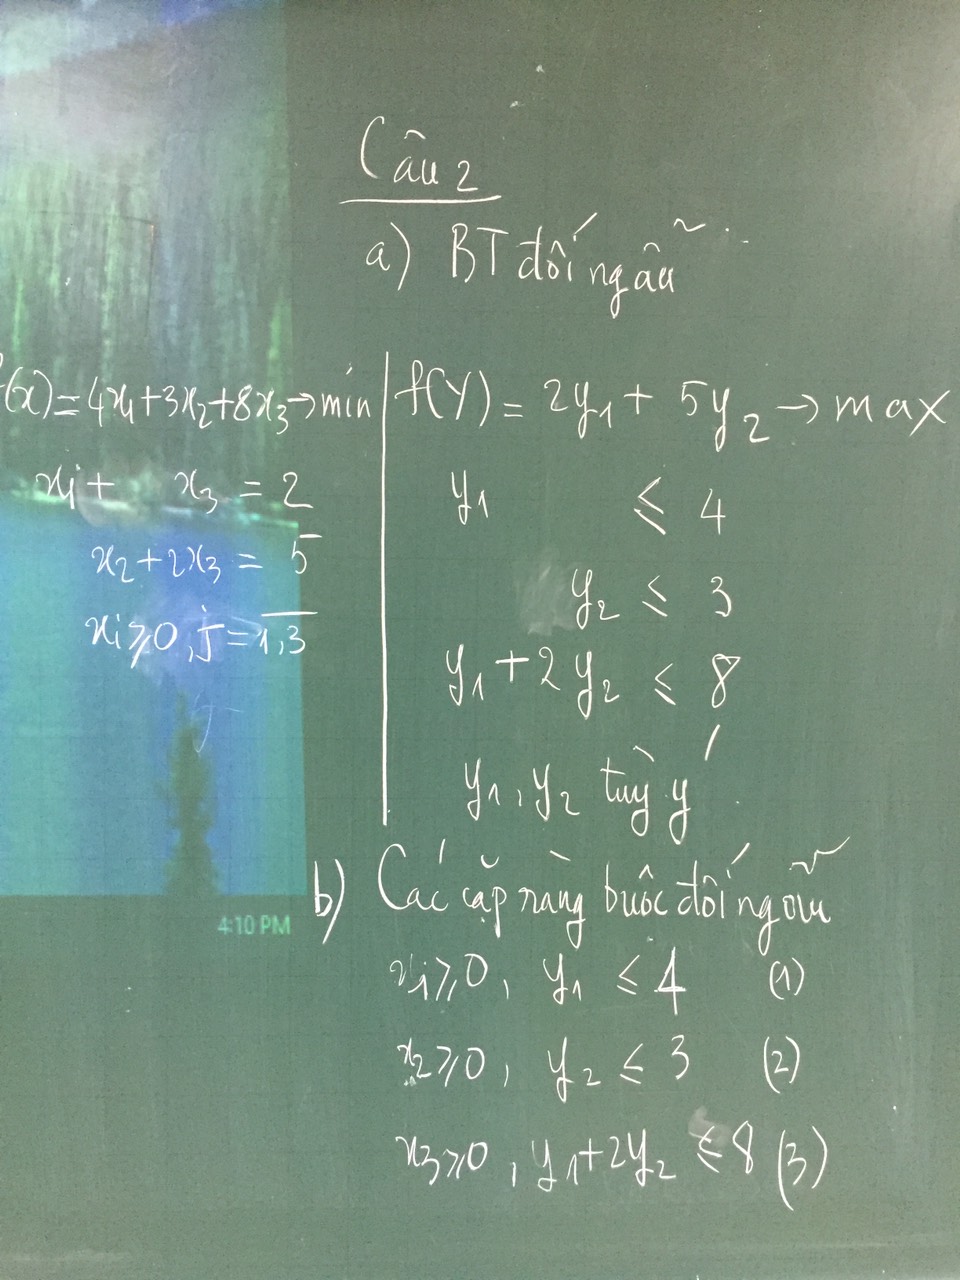 Câu 2
a) BT đối ngẫu
f(x) = 4x₁ + 3x₂ + 8x₃ → min
x₁ + x₃ = 2
x₂ + 2x₃ = 5
xⱼ ≥ 0, j = 1,3
f(Y) = 2y₁ + 5y₂ → max
y₁ ≤ 4
y₂ ≤ 3
y₁ + 2y₂ ≤ 8
y₁, y₂ tuỳ ý
b) Các cặp ràng buộc đối ngẫu
x₁ ≥ 0, y₁ ≤ 4 (1)
x₂ ≥ 0, y₂ ≤ 3 (2)
x₃ ≥ 0, y₁ + 2y₂ ≤ 8 (3)
4:10 PM